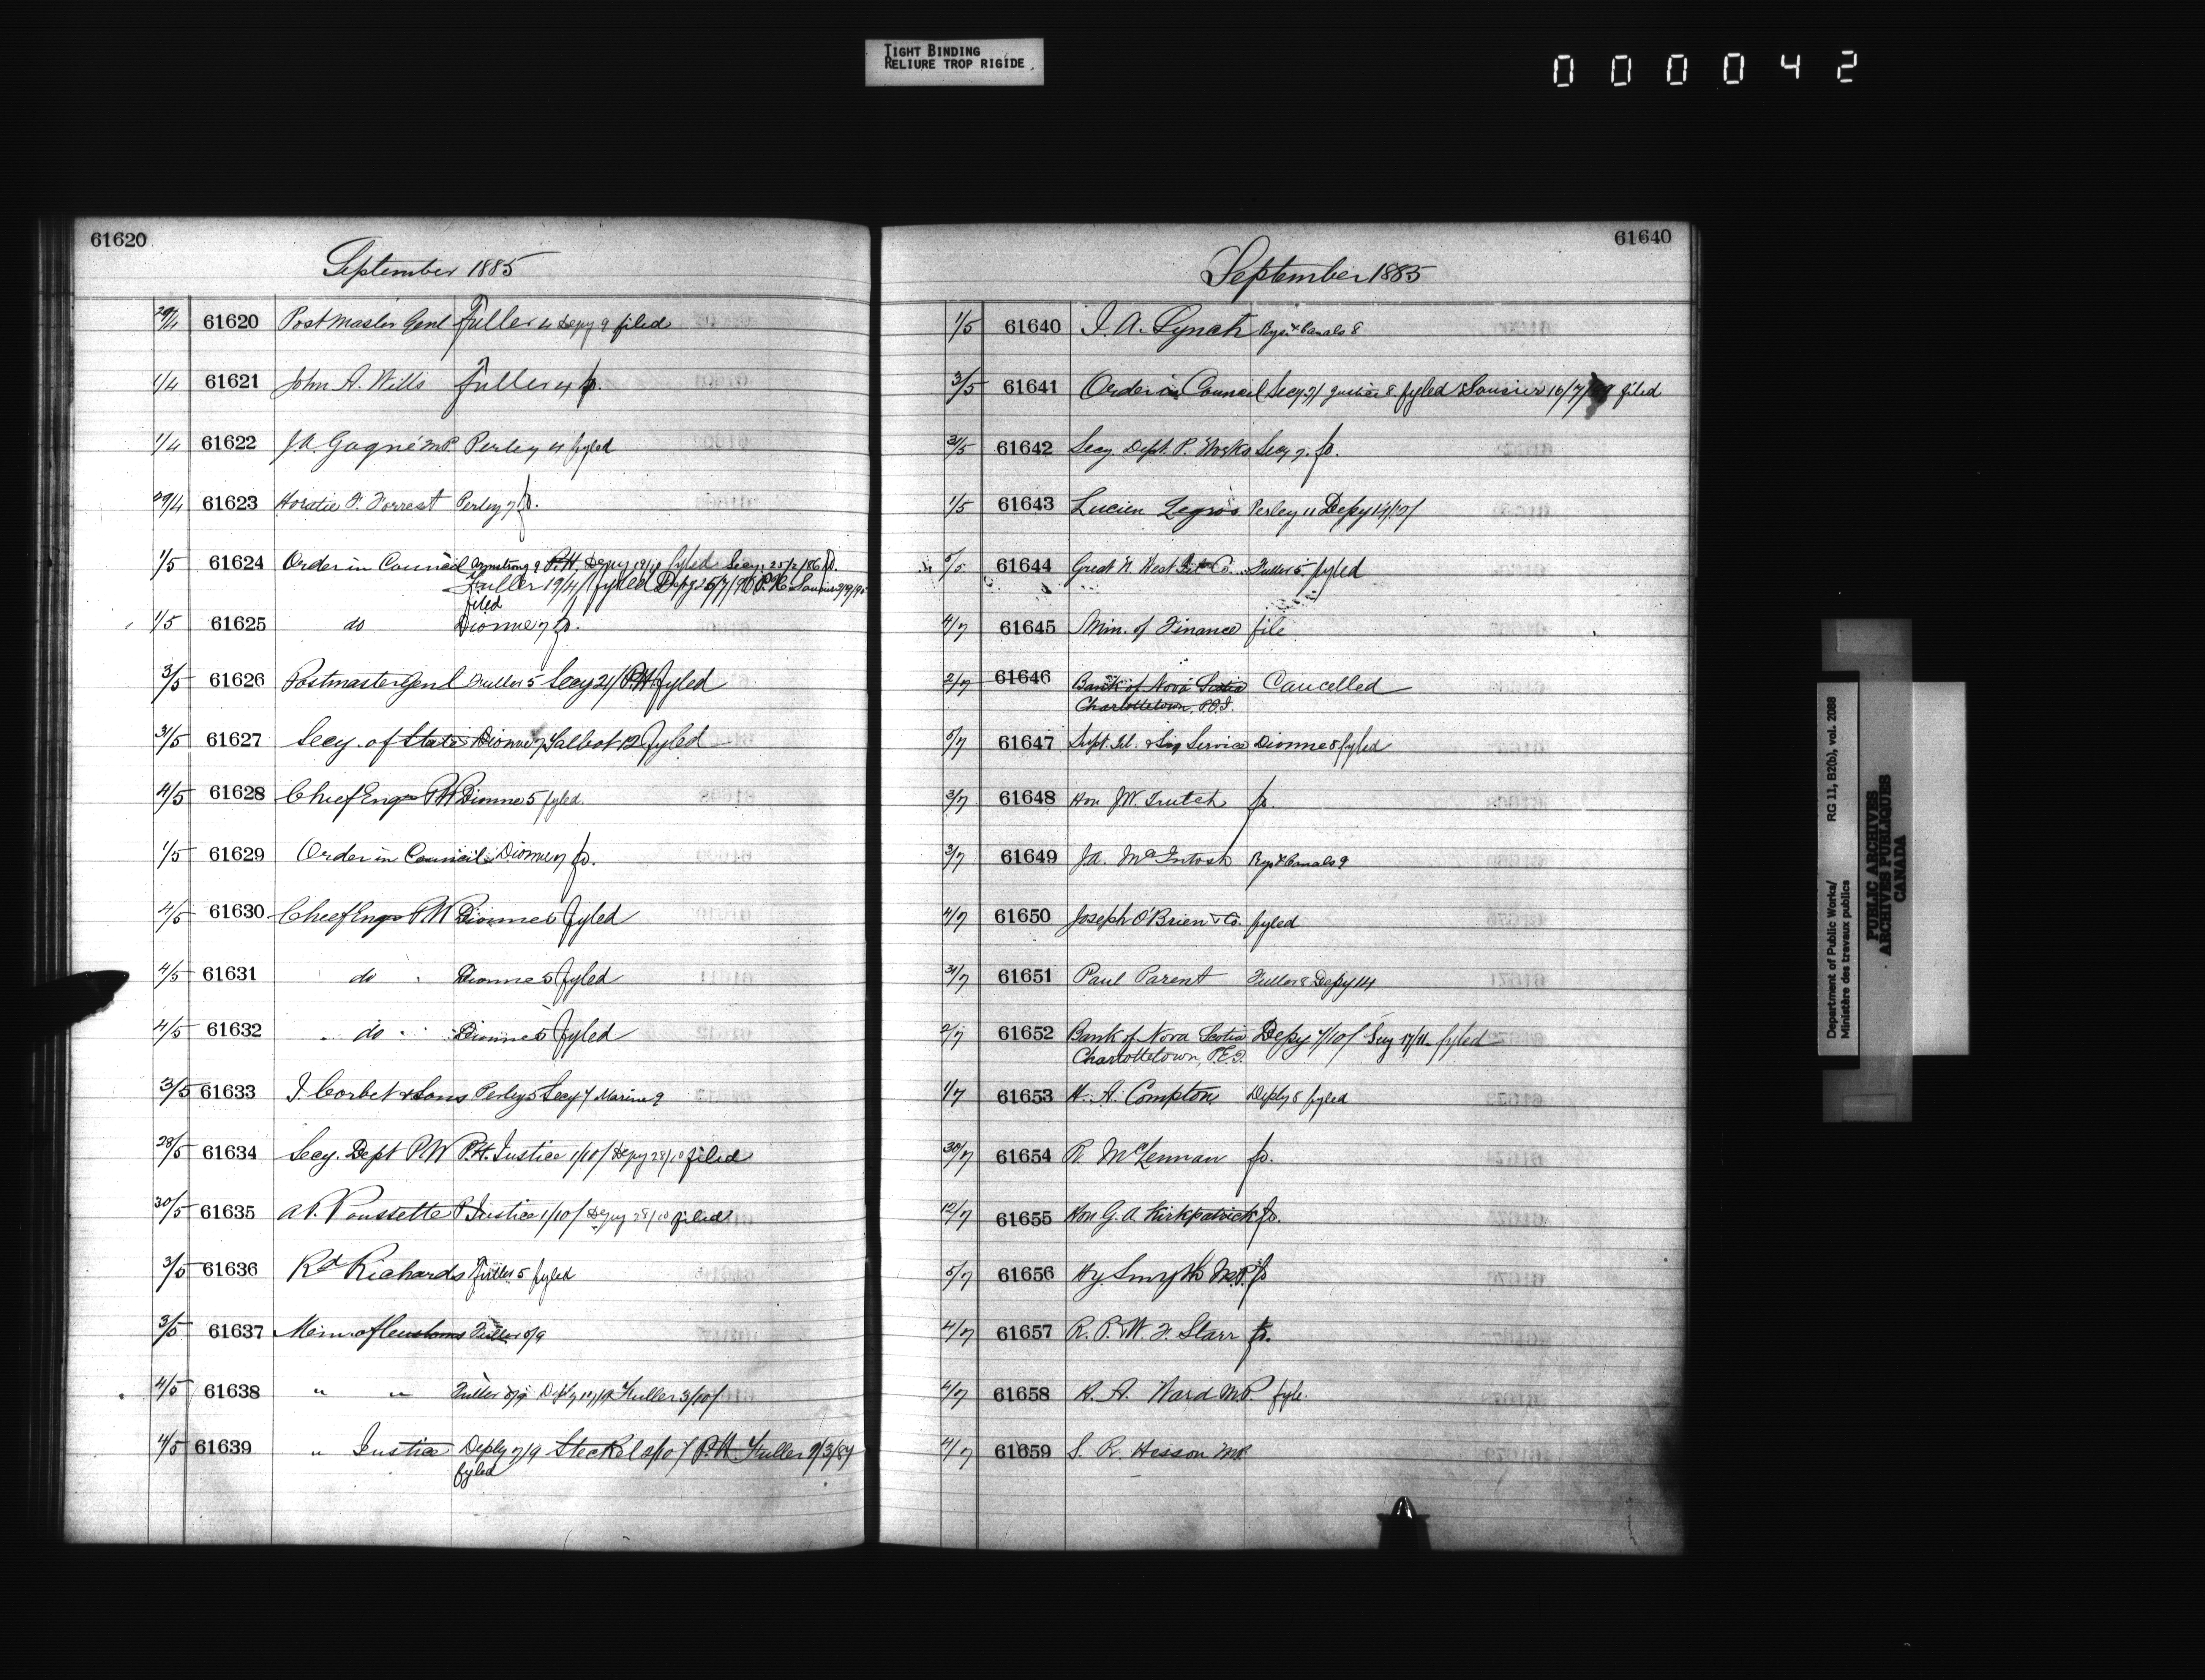 TIGHT BINDING
RELIURE TROP RIGIDE
000042
61620
September 1885
29/4 61620 Postmaster Genl Fuller 4 Depy 9 filed
1/4 61621 John A. Wills Fuller 4 fo.
1/4 61622 J.A. Gagné M.P. Perley 4 fyled
29/4 61623 Horatio F. Forrest Perley 7 fo.
1/5 61624 Order in Council Armstrong 9 P.H. Depy 19/9 fyled Secy. 25/2/86 fo.
Fuller 19/4/ fyled Depy 25/7/90 P.H.
filed
1/5 61625 do Dionne 7 fo.
3/5 61626 Postmaster Genl Fuller 5 Secy 21/ P.H. fyled
31/5 61627 Secy. of State Dionne 7 Talbot 12 fyled
4/5 61628 Chief Engr P.W Dionne 5 fyled.
1/5 61629 Order in Council Dionne 7 fo.
4/5 61630 Chief Engr P.W Dionne 5 fyled
4/5 61631 do Dionne 5 fyled
4/5 61632 do Dionne 5 fyled
3/5 61633 J Corbet & Sons Perley 5 Secy 7 Marine 9
28/5 61634 Secy. Dept P.W P.H. Justice 1/10/ Depy 28/10 filed
30/5 61635 A.P. Poussette P. Justice 1/10/ Depy 28/10 filed
3/5 61636 Rd Richards Fuller 5 fyled
3/5 61637 Min of Customs Fuller 5/9
4/5 61638 " " Fuller 5/9 Fuller 3/10/
4/5 61639 " Justice Deply 7/9 Steckel 2/10/ P.H. Fuller 9/3/87
fyled
61640
September 1885
1/5 61640 J. A. Lynch Rys. & Canals 8
3/5 61641 Order in Council Secy 7/ Justice 8 fyled 16/7/ filed
31/5 61642 Secy Dept. P. Works Secy 7. fo.
1/5 61643 Lucien Legros Perley 11 Depy 14/10/
5/5 61644 Great N. West Tel Co. Fuller 5. fyled
4/7 61645 Min. of Finance file
2/7 61646 Bank of Nova Scotia Cancelled
Charlottetown, P.E.I.
5/7 61647 Supt. Tel. & Sig Service Dionne 8 fyled
3/7 61648 Hon J.W. Trutch fo.
3/7 61649 J.A. McIntosh Rys & Canals 9
4/7 61650 Joseph O'Brien & Co. fyled
31/7 61651 Paul Parent Fuller 8 Depy 14
2/7 61652 Bank of Nova Scotia Depy 7/10/ Secy 17/11 fyled
Charlottetown, P.E.I.
1/7 61653 H. A. Compton Deply 8 fyled
30/7 61654 R. McLennan fo.
12/7 61655 Hon G. A. Kirkpatrick fo.
5/7 61656 Hy. Smyth M.P. fo
4/7 61657 R. P. & W. F. Starr fo.
4/7 61658 H. A. Ward M.P. fyle.
4/7 61659 S. R. Hesson M.P.
Department of Public Works/
Ministère des travaux publics
RG 11, B2(b), vol. 2088
PUBLIC ARCHIVES
ARCHIVES PUBLIQUES
CANADA